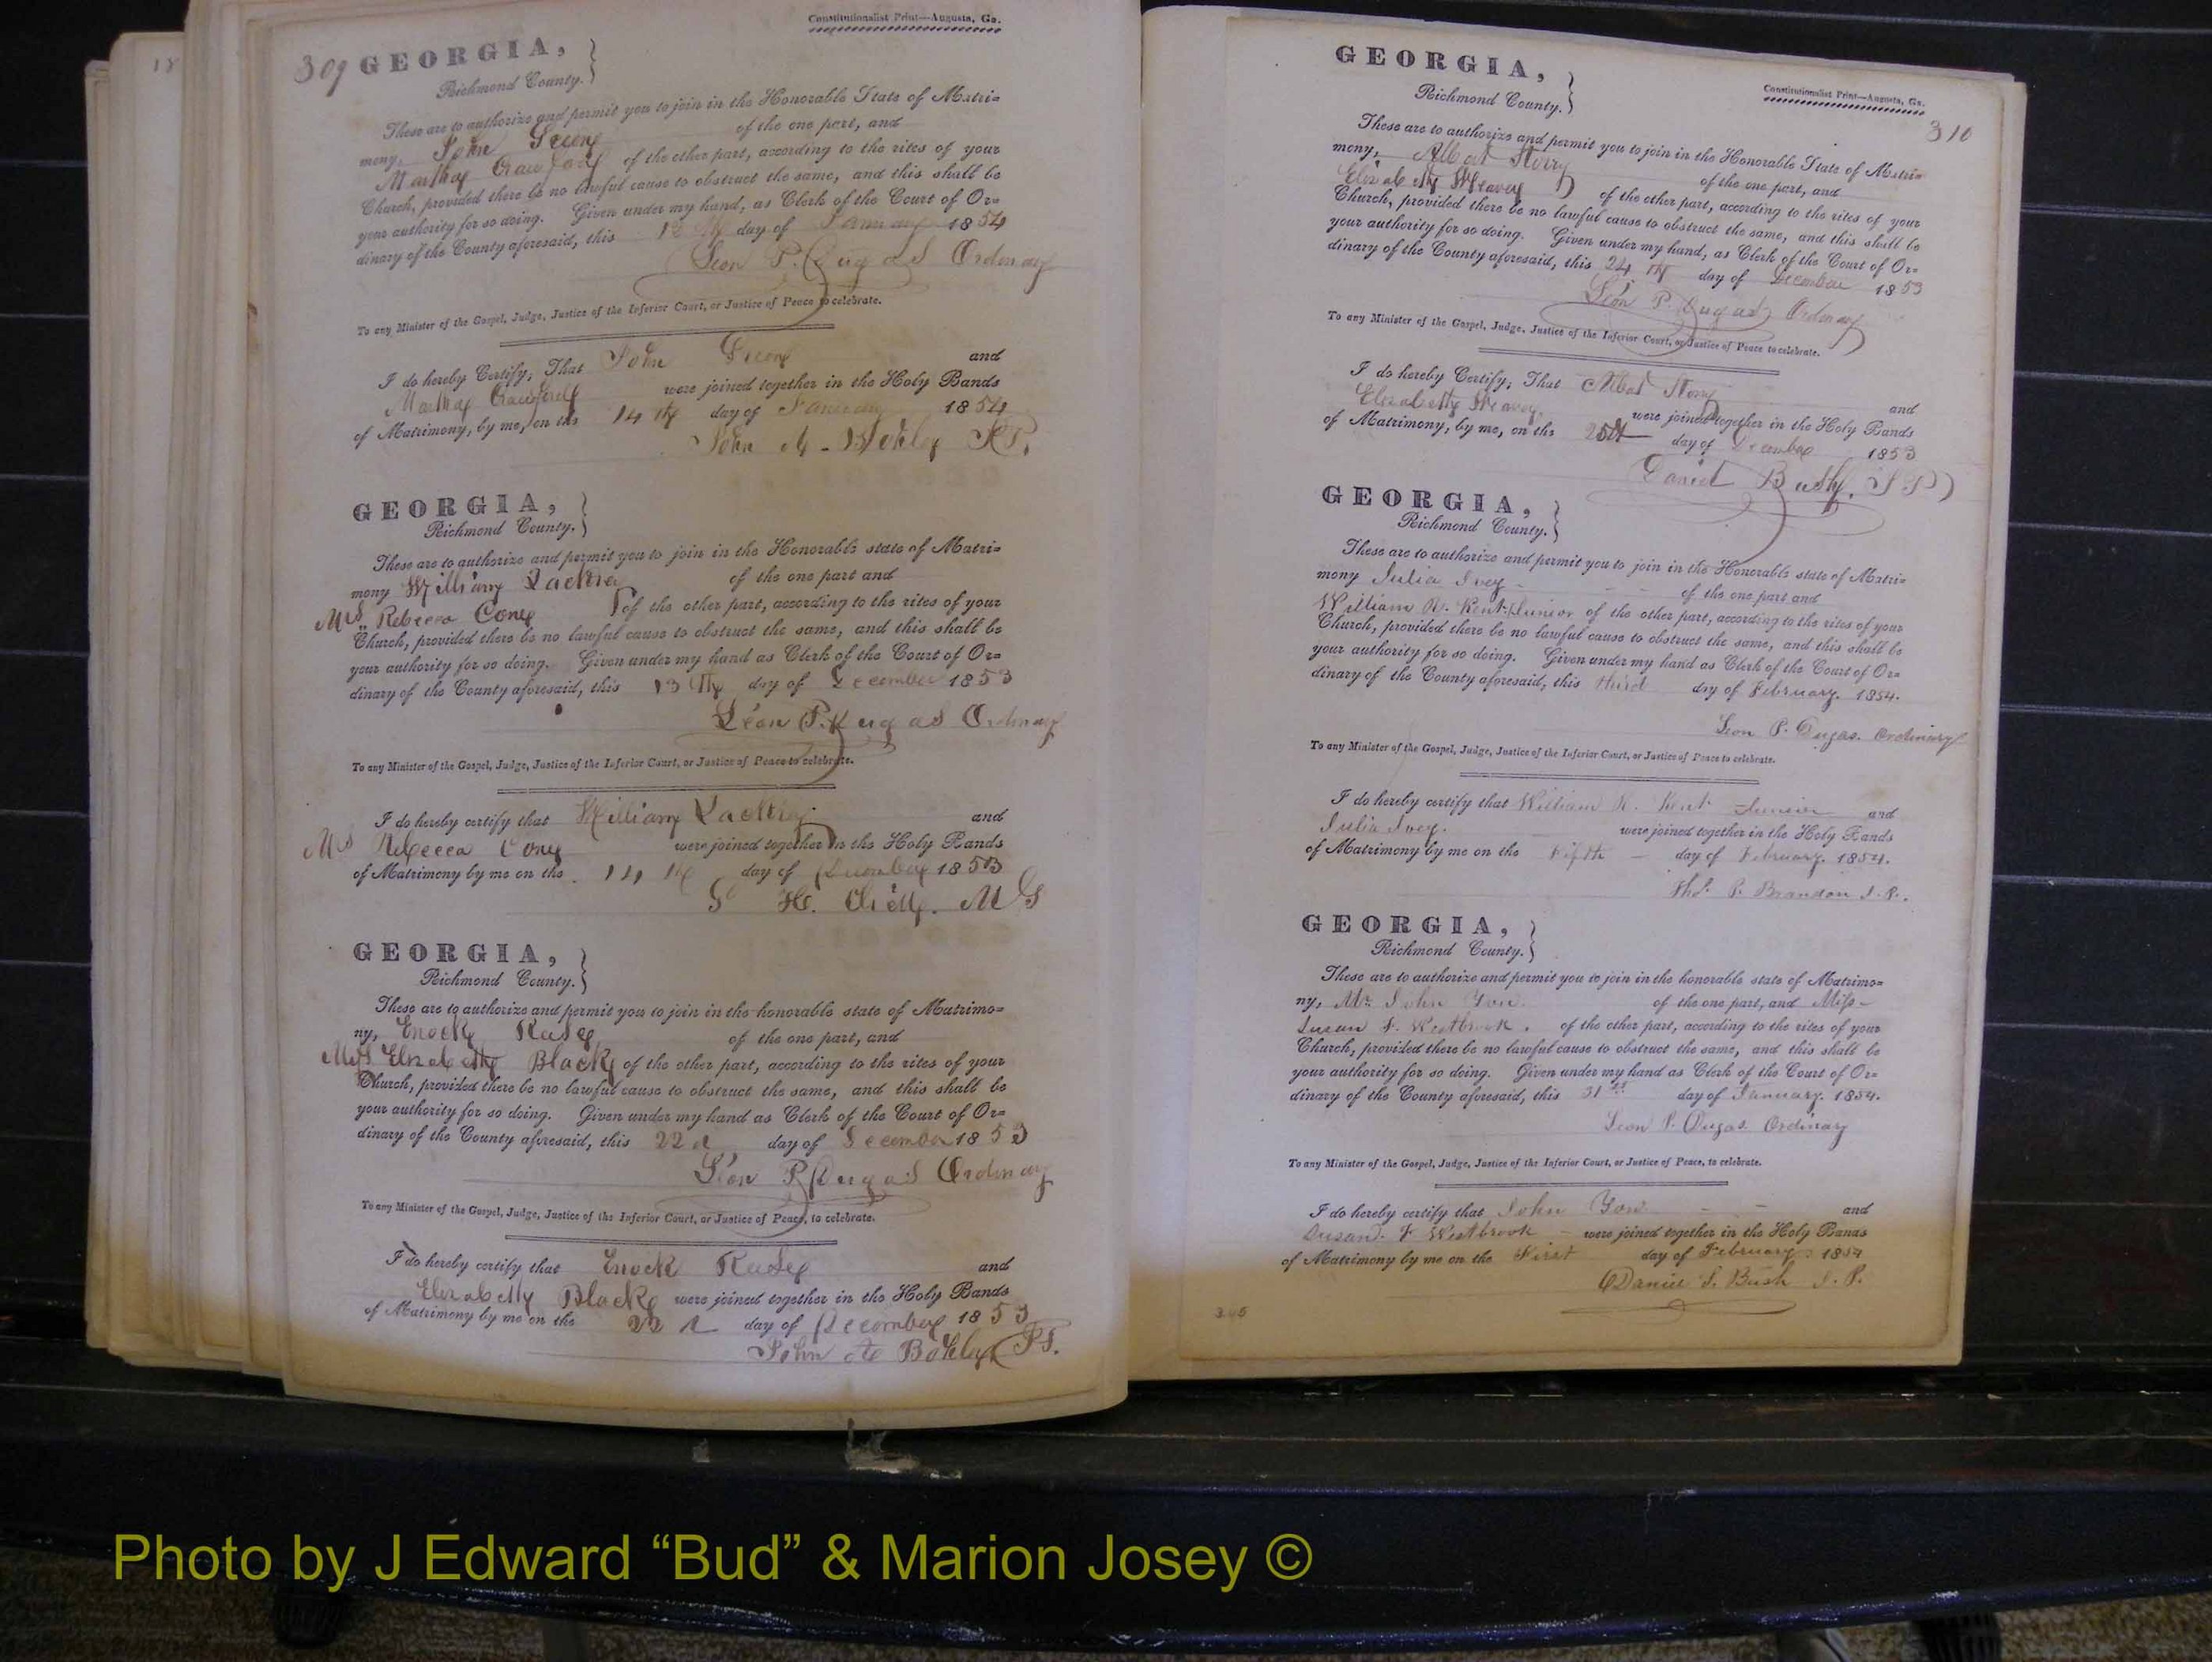 Constitutionalist Print—Augusta, Ga.
309 GEORGIA,
Richmond County.
These are to authorize and permit you to join in the Honorable State of Matri=
mony, John of the one part, and
Martha Crawford of the other part, according to the rites of your
Church, provided there be no lawful cause to obstruct the same, and this shall be
your authority for so doing. Given under my hand, as Clerk of the Court of Or=
dinary of the County aforesaid, this day of January 1854
Leon P. Dugas Ordinary
To any Minister of the Gospel, Judge, Justice of the Inferior Court, or Justice of Peace to celebrate.
I do hereby Certify, That John and
Martha Crawford were joined together in the Holy Bands
of Matrimony, by me, on the 14 th day of January 1854
John A. Bohler J P.
GEORGIA,
Richmond County.
These are to authorize and permit you to join in the Honorable state of Matri=
mony William of the one part and
Mrs Rebecca Coney of the other part, according to the rites of your
Church, provided there be no lawful cause to obstruct the same, and this shall be
your authority for so doing. Given under my hand as Clerk of the Court of Or=
dinary of the County aforesaid, this 13 th day of December 1853
Leon P. Dugas Ordinary
To any Minister of the Gospel, Judge, Justice of the Inferior Court, or Justice of Peace to celebrate.
I do hereby certify that William and
Rebecca Coney were joined together in the Holy Bands
of Matrimony by me on the 14 th day of December 1853
GEORGIA,
Richmond County.
These are to authorize and permit you to join in the honorable state of Matrimo=
ny, Enock of the one part, and
Elizabeth Black of the other part, according to the rites of your
Church, provided there be no lawful cause to obstruct the same, and this shall be
your authority for so doing. Given under my hand as Clerk of the Court of Or=
dinary of the County aforesaid, this 22 d day of December 1853
Leon P Dugas Ordinary
To any Minister of the Gospel, Judge, Justice of the Inferior Court, or Justice of Peace, to celebrate.
I do hereby certify that Enock and
Elizabeth Black were joined together in the Holy Bands
of Matrimony by me on the 22 d day of December 1853
John A Bohler
GEORGIA,
Richmond County.
Constitutionalist Print—Augusta, Ga.
310
These are to authorize and permit you to join in the Honorable State of Matri=
mony, Albert Story of the one part, and
Elizabeth Weavey of the other part, according to the rites of your
Church, provided there be no lawful cause to obstruct the same, and this shall be
your authority for so doing. Given under my hand, as Clerk of the Court of Or=
dinary of the County aforesaid, this 24 th day of December 1853
Leon P. Dugas Ordinary
To any Minister of the Gospel, Judge, Justice of the Inferior Court, or Justice of Peace to celebrate.
I do hereby Certify, That Albert Story and
Elizabeth Weavey were joined together in the Holy Bands
of Matrimony, by me, on the 25th day of December 1853
Daniel Bush, J. P.
GEORGIA,
Richmond County.
These are to authorize and permit you to join in the Honorable state of Matri=
mony Julia Ivey of the one part and
William R. Kent Junior of the other part, according to the rites of your
Church, provided there be no lawful cause to obstruct the same, and this shall be
your authority for so doing. Given under my hand as Clerk of the Court of Or=
dinary of the County aforesaid, this third day of February. 1854.
Leon P. Dugas. Ordinary
To any Minister of the Gospel, Judge, Justice of the Inferior Court, or Justice of Peace to celebrate.
I do hereby certify that William R. Kent Junior and
Julia Ivey. were joined together in the Holy Bands
of Matrimony by me on the Fifth day of February. 1854.
Thos. P. Brandon J. P.
GEORGIA,
Richmond County.
These are to authorize and permit you to join in the honorable state of Matrimo=
ny, Mr. John Yon of the one part, and Miss
Susan F. Westbrook. of the other part, according to the rites of your
Church, provided there be no lawful cause to obstruct the same, and this shall be
your authority for so doing. Given under my hand as Clerk of the Court of Or=
dinary of the County aforesaid, this 31st day of January. 1854.
Leon P. Dugas. Ordinary
To any Minister of the Gospel, Judge, Justice of the Inferior Court, or Justice of Peace, to celebrate.
I do hereby certify that John Yon and
Susan. F Westbrook were joined together in the Holy Bands
of Matrimony by me on the First day of February 1854
Daniel S. Bush J. P.
Photo by J Edward “Bud” & Marion Josey ©